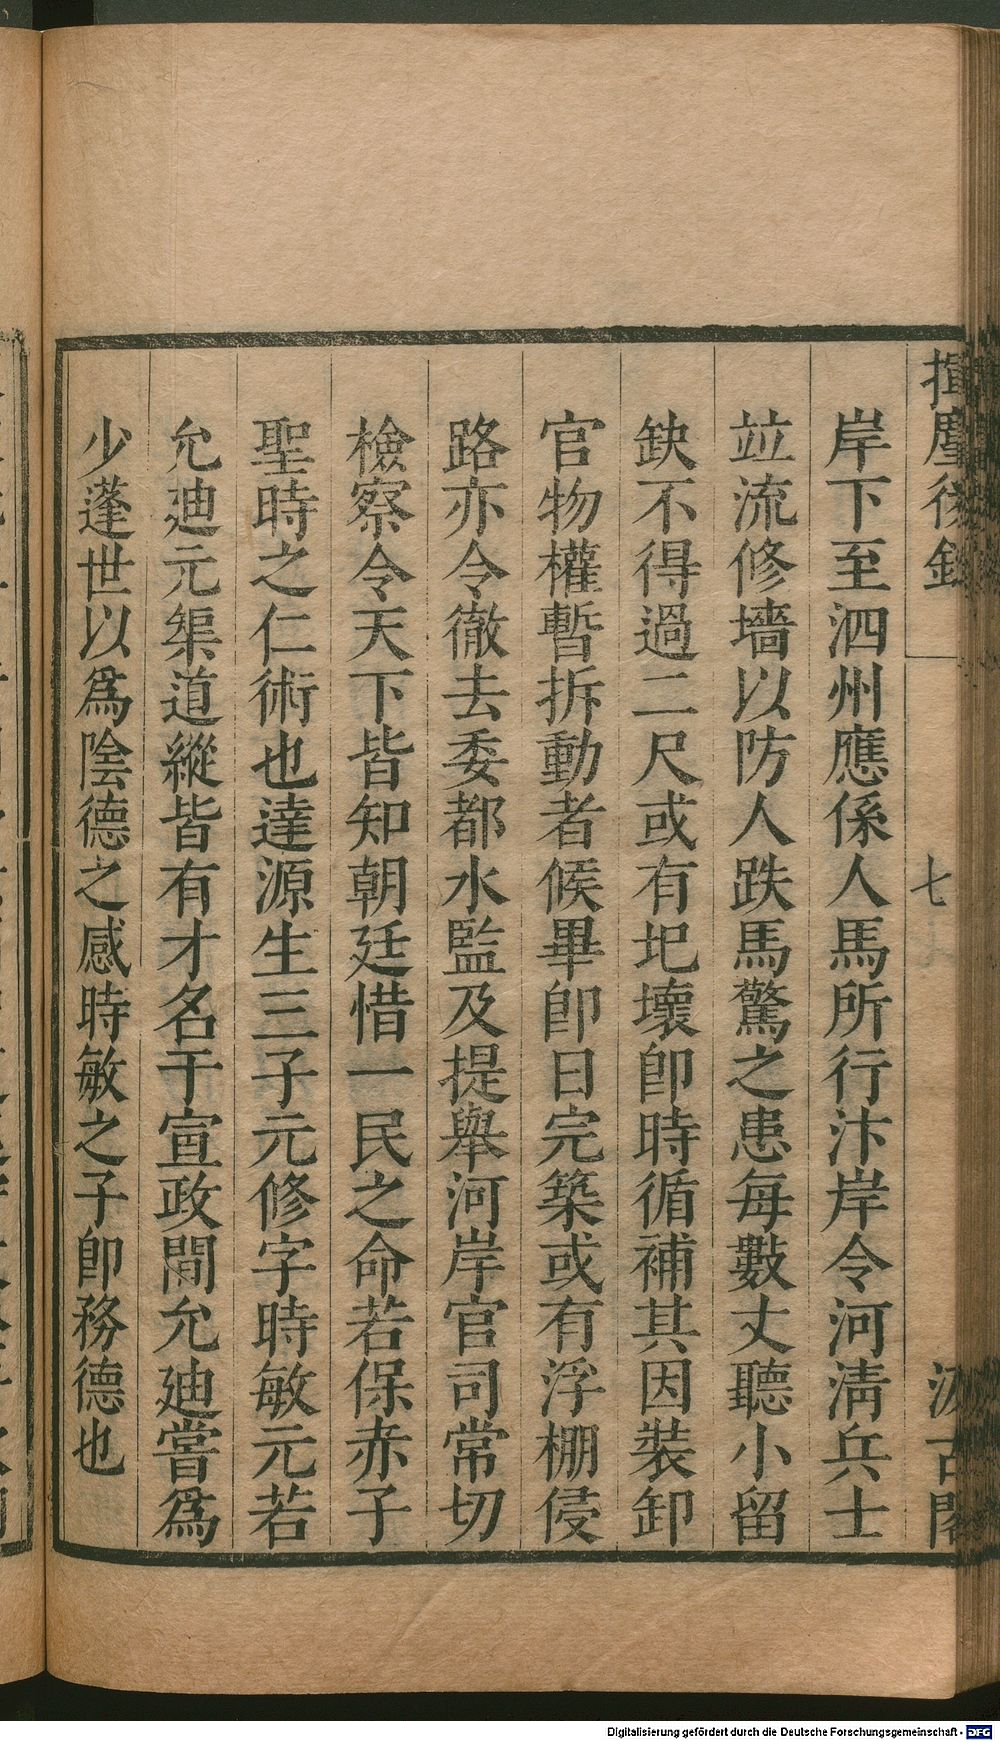 揮麈後錄
七
汲古閣
岸下至泗州應係人馬所行汴岸令河淸兵士
竝流修墻以防人跌馬驚之患每數丈聽小留
缺不得過二尺或有圯壞卽時循補其因裝卸
官物權暫拆動者候畢卽日完築或有浮棚侵
路亦令徹去委都水監及提舉河岸官司常切
檢察令天下皆知朝廷惜一民之命若保赤子
聖時之仁術也達源生三子元修字時敏元若
允迪元渠道縱皆有才名于宣政間允廸嘗爲
少蓬世以爲陰德之感時敏之子卽務德也
Digitalisierung gefördert durch die Deutsche Forschungsgemeinschaft - DFG